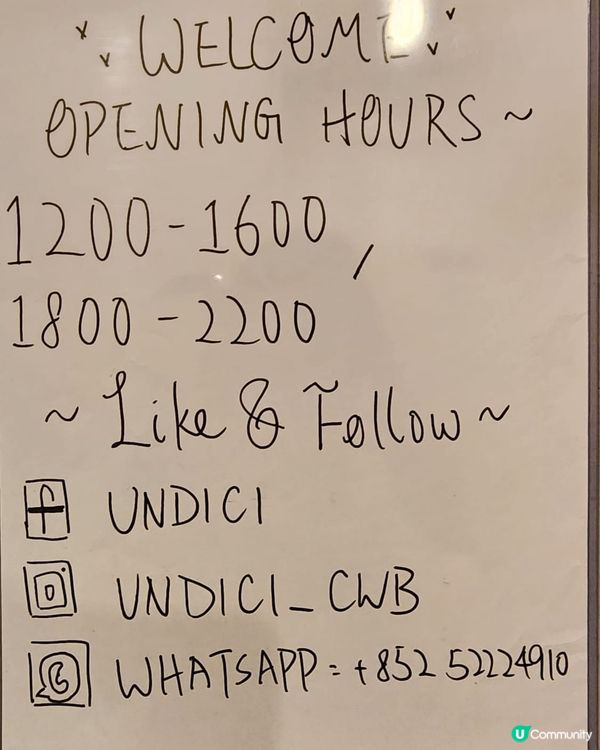 WELCOME
OPENING HOURS ~
1200-1600,
1800-2200
~ Like & Follow ~
UNDICI
UNDICI_CWB
WHATSAPP = +852 52224910
U Community